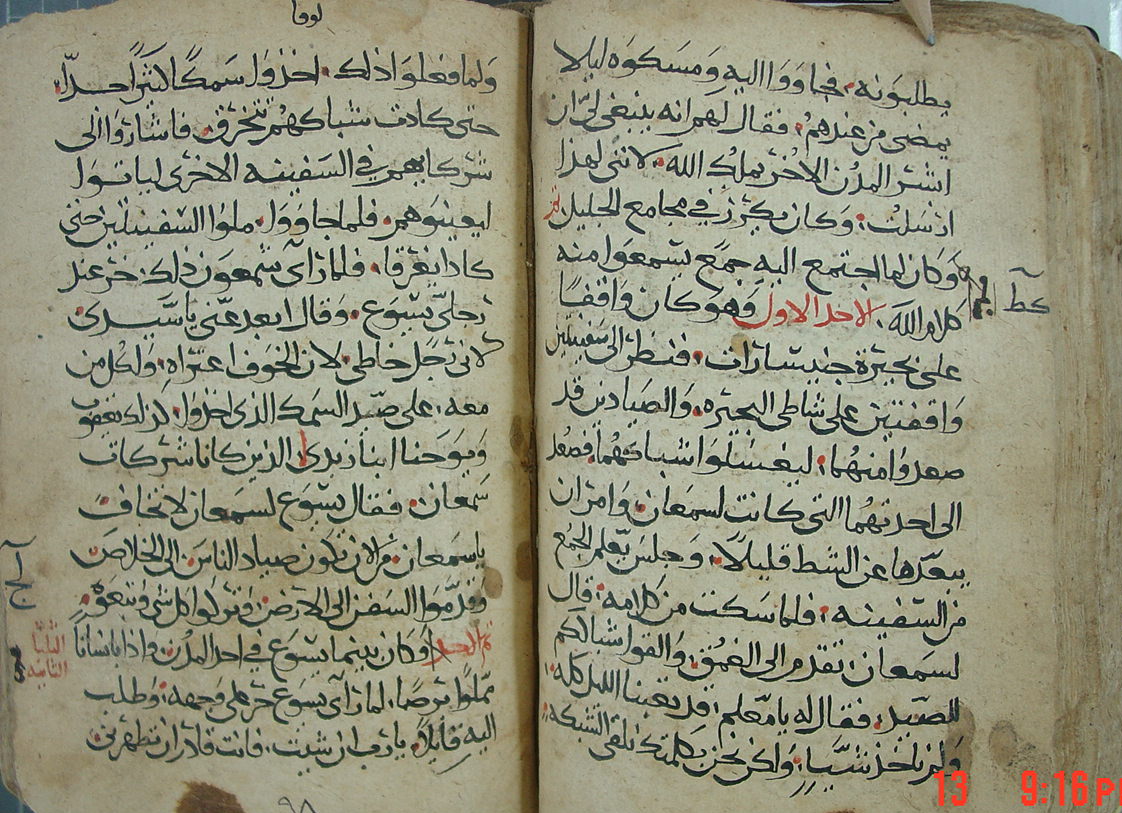 يطلبونه، فجاووا اليه ومسكوه ليلا
يمضى من عندهم، فقال لهم انه ينبغى لى ان
ابشر المدن الاخر بملك الله، لاننى لهذا
ارسلت، وكان يكرز في مجامع الجليل تم
وكان لما اجتمع اليه جمع يسمعوا منه
كلام الله، الاحد الاول وهو كان واقفا
على بحيرة جنيسارات، فنظر الى سفينتين
واقفتين على شاطى البحيره، والصيادين قد
صعدوا منهما، ليغسلوا شباكهما، فصعد
الى احدتهما التى كانت لسمعان، وامر ان
يبعدها عن الشط قليلا، وجلس يعلم الجمع
من السفينه، فلما سكت من كلامه، قال
لسمعان، تقدم الى العمق، والقوا شباككم
للصيد، فقال له يا معلم، قد تعبنا الليل كله
ولم ناخذ شيا، ولكن نحن بكلمتك نلقى الشبكه
لوقا
ولما فعلوا ذلك، اخذوا سمكا كثيرا جدا،
حتى كادت شباكهم تتخرق، فاشاروا الى
شركايهم في السفينه الاخرى لياتوا
ليعينوهم، فلما جاووا، ملوا السفينتين حتى
كادا يغرقا، فلما راى سمعون ذلك، خر عند
رجلى يسوع، وقال ابعد عنى يا سيدى
لانى رجل خاطى، لان الخوف اعتراه، ولكل من
معه، على صيد السمك الذى اخذوا، كذلك يعقوب
ويوحنا ابنا زبدى، الذين كانا شركات
سمعان، فقال يسوع لسمعان لا تخاف
يا سمعان، من الان تكون صياد الناس، الى الخلاص
وقدموا السفن الى الارض، وتركوا كل شى وتبعوه
تم الاحد وكان بينما يسوع في احد المدن، واذا بانسانا
مملوا برصا، لما راى يسوع خر على وجهه، وطلب
اليه قايلا، يا رب ان شيت، فانت قادر ان تطهرنى
الثلثا
الثانيه
٩٨
13 9:16 P